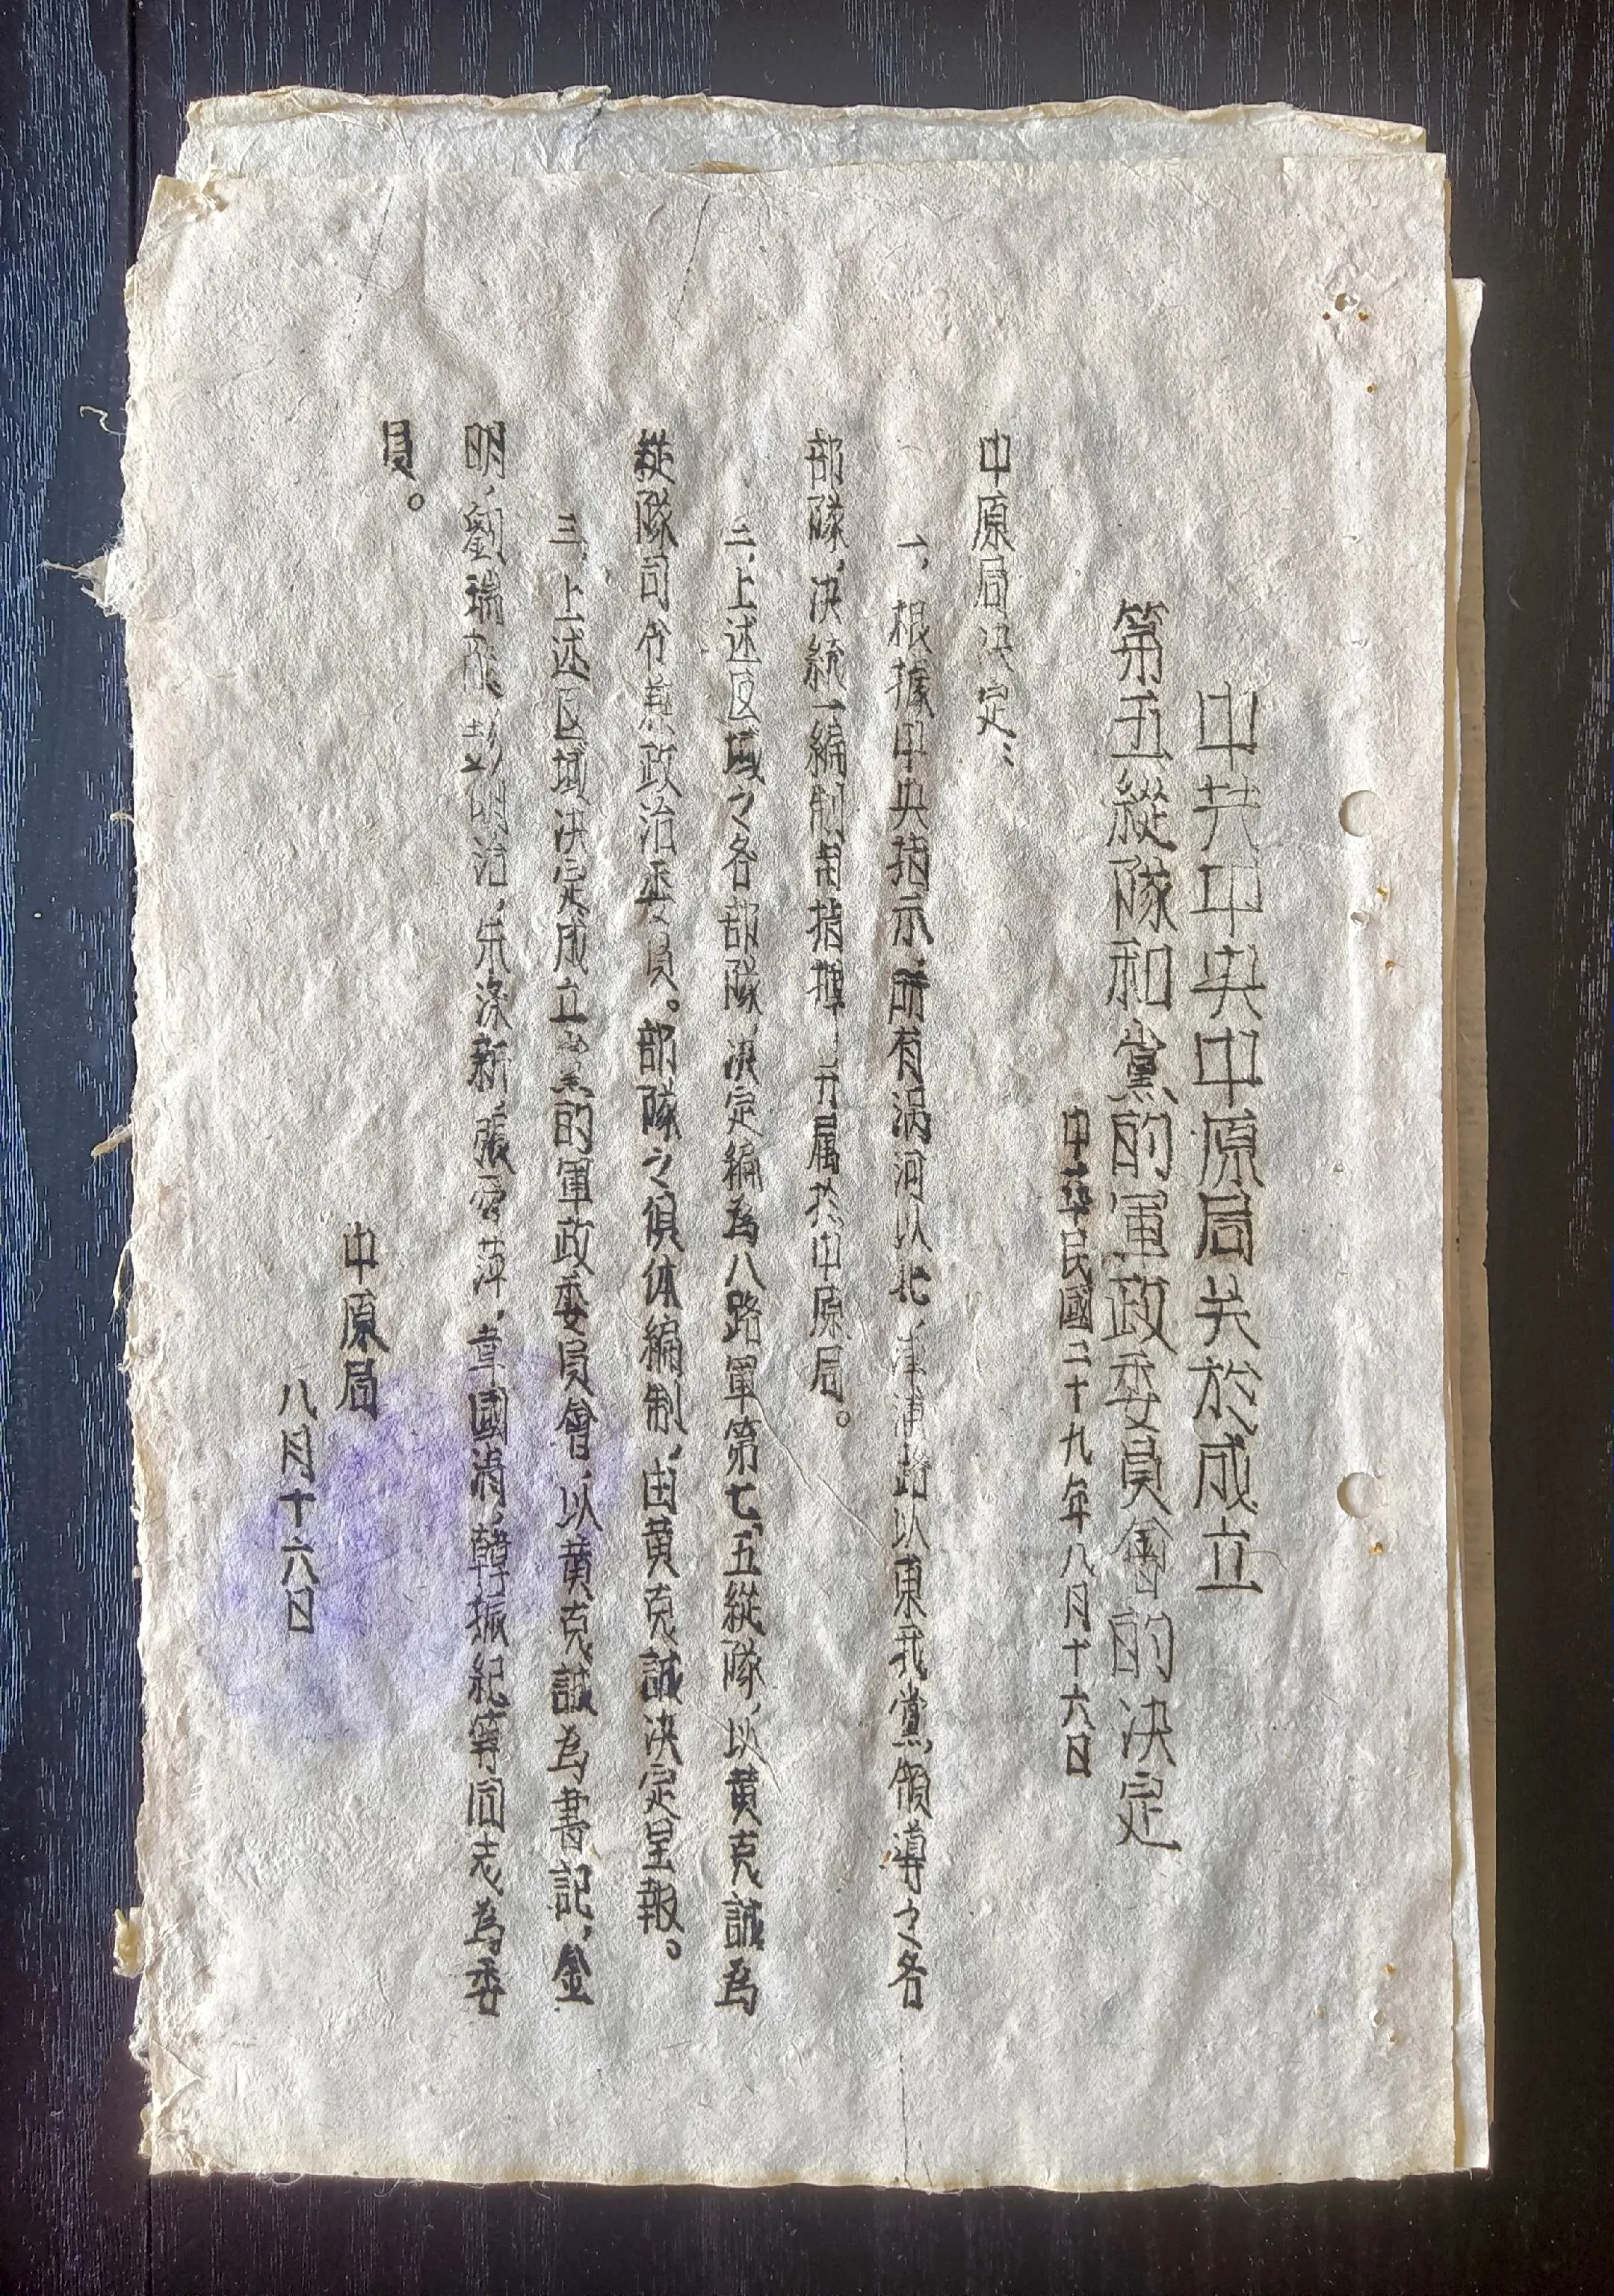 中共中央中原局关於成立
第五縱隊和黨的軍政委員會的決定
中華民國二十九年八月十六日
中原局决定：
一，根據中央指示，所有涡河以北，津浦路以東我黨領導之各
部隊，决統一編制与指揮，并属于中原局。
二，上述区域之各部隊，决定編為八路軍第七五縱隊，以黄克誠為
縱隊司令兼政治委員。部隊之俱体編制，由黄克誠决定呈報。
三，上述区域决定成立党的軍政委員會，以黄克誠為書記，金
明，劉瑞龍，彭明治，朱滌新，張愛萍，韋國清，韓振紀等同志為委
員。
中原局
八月十六日